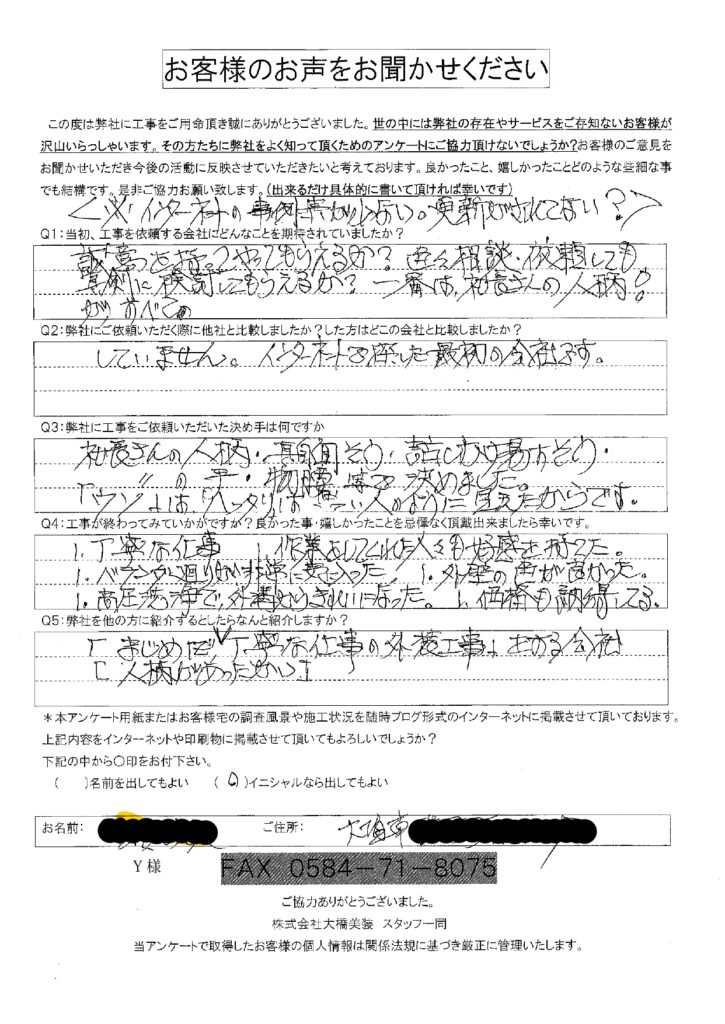 お客様のお声をお聞かせください
この度は弊社に工事をご用命頂き誠にありがとうございました。世の中には弊社の存在やサービスをご存知ないお客様が
沢山いらっしゃいます。その方たちに弊社をよく知って頂くためのアンケートにご協力頂けないでしょうか?お客様のご意見を
お聞かせいただき今後の活動に反映させていただきたいと考えております。良かったこと、嬉しかったことどのような些細な事
でも結構です。是非ご協力お願い致します。(出来るだけ具体的に書いて頂ければ幸いです)
インターネットの 事例 少ない。更新がされてない?
Q1:当初、工事を依頼する会社にどんなことを期待されていましたか?
誠意を持ってやってもらえるか? 相談・依頼しても
真剣に検討してもらえるか? 一番は、社長さんの人柄!
がすべて
Q2:弊社にご依頼いただく際に他社と比較しましたか?した方はどこの会社と比較しましたか?
していません。インターネットで探した最初の会社です。
Q3:弊社に工事をご依頼いただいた決め手は何ですか
社長さんの人柄・真面目そう・話しやすそう・
〃 の 物腰 決めました。
「ウソ」は「ハッタリ」は 人のように見えたからです。
Q4:工事が終わってみていかがですか?良かった事・嬉しかったことを忌憚なく頂戴出来ましたら幸いです。
1. 丁寧な仕事 1. 作業をしてくれた人々も好感を持てた。
1. ベランダ廻りが非常に気に入った 1. 外壁の色が良かった。
1. 高圧洗浄で、外構もきれいになった。 1. 価格も納得してる。
Q5:弊社を他の方に紹介するとしたらなんと紹介しますか?
「まじめだ 丁寧な仕事の外装工事 会社
「人柄があったかい」
*本アンケート用紙またはお客様宅の調査風景や施工状況を随時ブログ形式のインターネットに掲載させて頂いております。
上記内容をインターネットや印刷物に掲載させて頂いてもよろしいでしょうか?
下記の中から○印をお付下さい。
( )名前を出してもよい (○)イニシャルなら出してもよい
お名前: ご住所: 大垣市
Y様 FAX 0584-71-8075
ご協力ありがとうございました。
株式会社大橋美装 スタッフ一同
当アンケートで取得したお客様の個人情報は関係法規に基づき厳正に管理いたします。